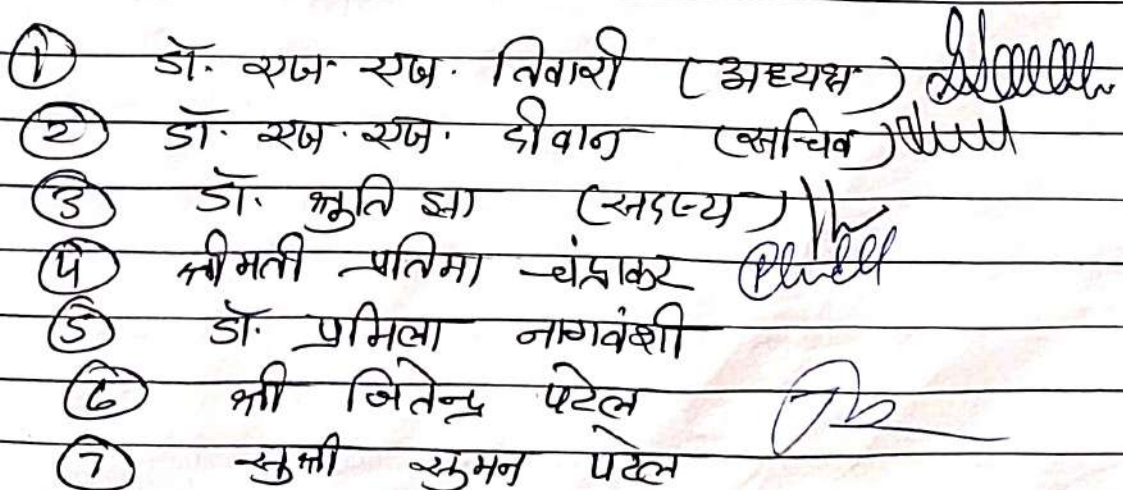 ① डॉ. एस. एस. तिवारी (अध्यक्ष)
② डॉ. एस. एस. दीवान (सचिव)
③ डॉ. श्रुति झा (सदस्य)
④ श्रीमती प्रतिमा चंद्राकर
⑤ डॉ. प्रमिला नागवंशी
⑥ श्री जितेन्द्र पटेल
⑦ सुश्री सुमन पटेल